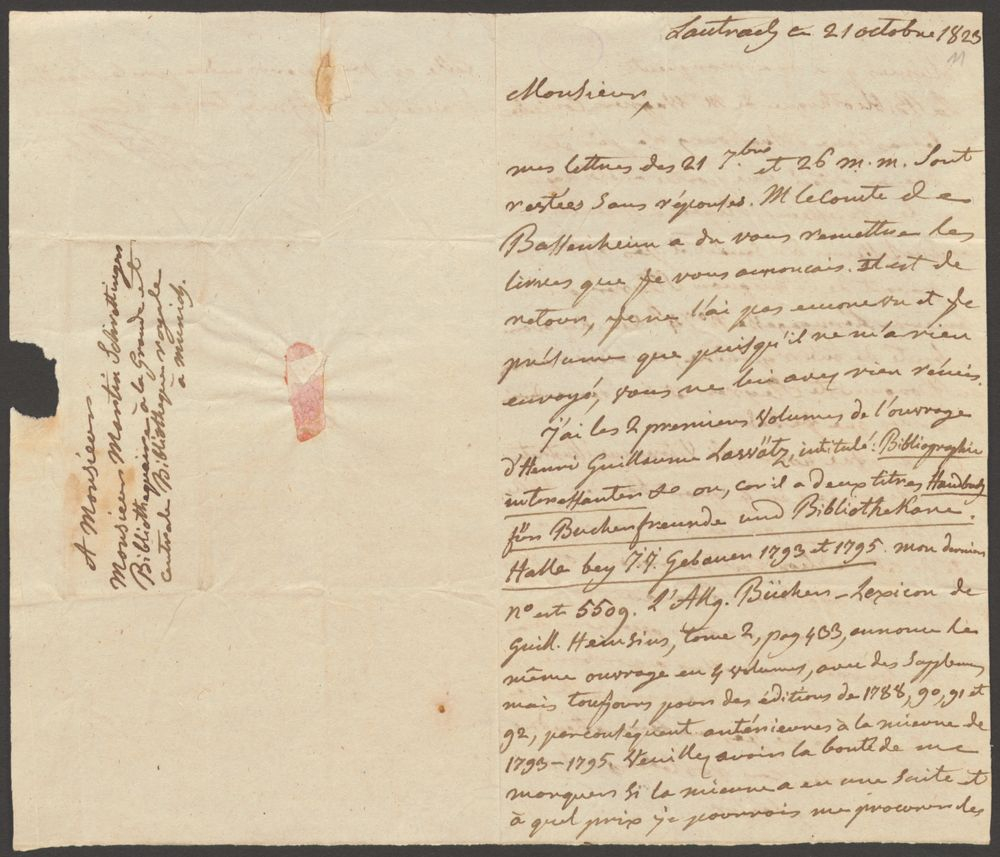 Lautrach ce 21 octobre 1823
11
Monsieur,
mes lettres des 21 7.bre et 26 m.m. sont
restées sans réponses. M le Comte de
Bassenheim a du vous remettre les
livres que je vous annonçais. il est de
retour, je ne l'ai pas encore vu et je
présume que puisqu'il ne m'a rien
envoyé, vous ne lui avez rien remis.
J'ai les 2 premiers volumes de l'ouvrage
d'Henri Guillaume Lawätz, intitulé: Bibliographie
interessanter &c ou, car il a deux titres Handbuch
für Bucherfreunde und Bibliothekare.
Halle bey J.J. Gebauer 1793 et 1795. mon dernier
n° est 5509. L'Allg. Bücher-Lexicon de
Guill. Heinsius, tome 2, pag 433, annonce le
même ouvrage en 4 volumes, avec des supplemens
mais toujours pour des éditions de 1788, 90, 91 et
92, par conséquent antérieures à la mienne de
1793-1795. Veuillez avoir la bonté de me
marquer si la mienne a eu une suite et
à quel prix je pourrois me procurer les
A Monsieur
Monsieur Martin Schrettinger
Bibliothequaire à la Grande et
centrale Bibliotheque royale
à Munich.